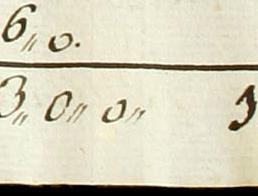 6,, 0.
3,, 0,, 0,,